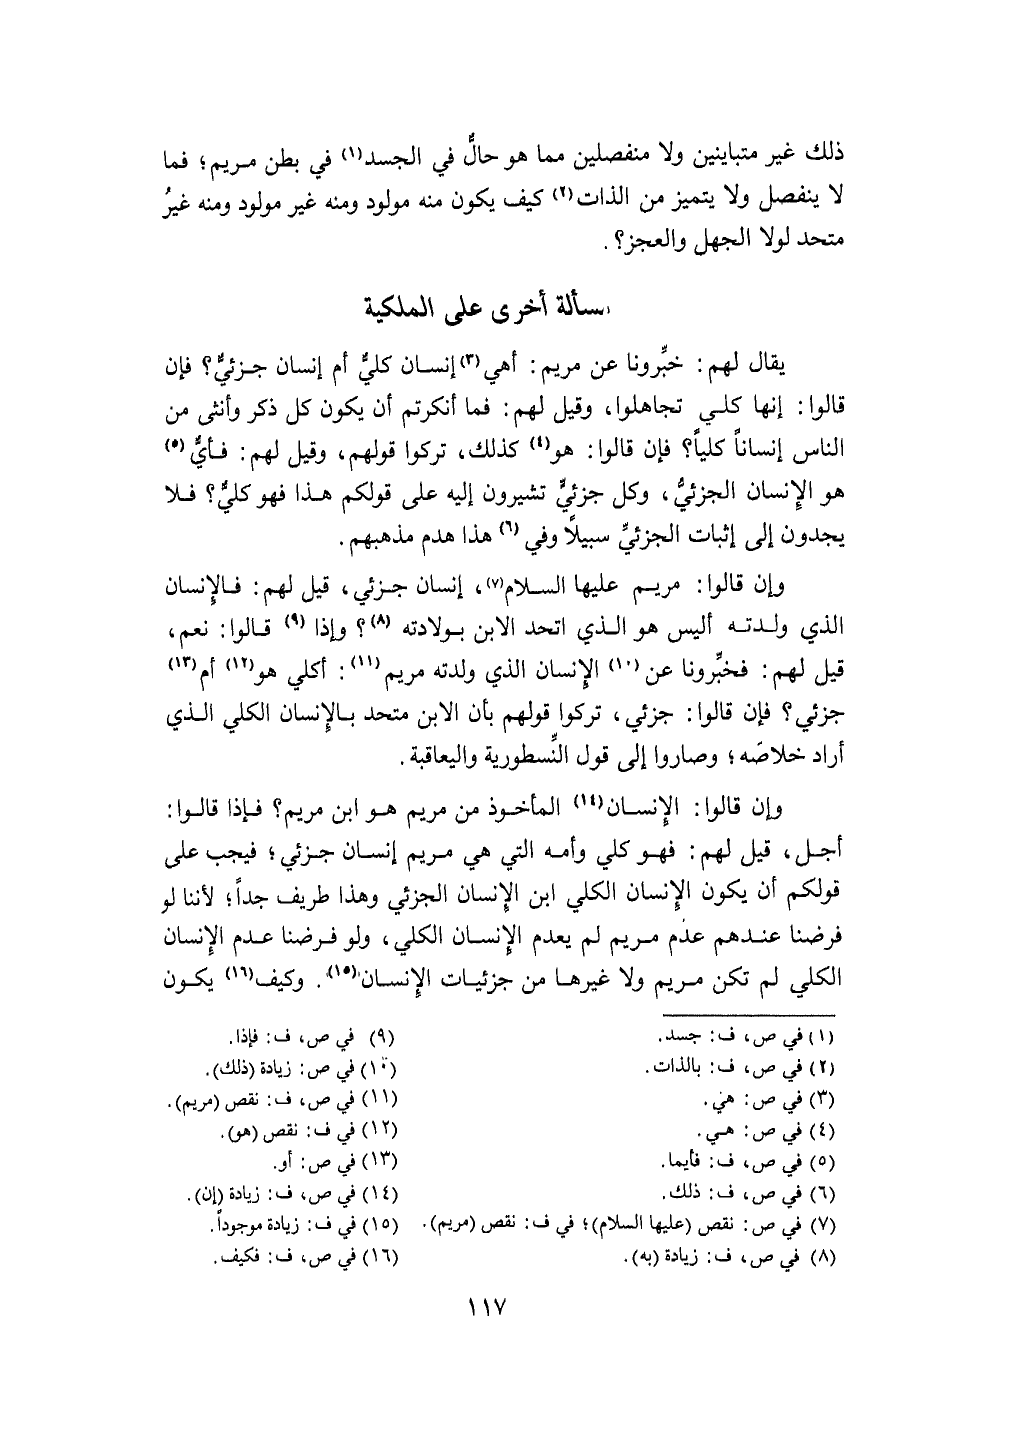 ذلك غير متباينين ولا منفصلين مما هو حالٌّ في الجسد(١) في بطن مريم؛ فما
لا ينفصل ولا يتميز من الذات(٢) كيف يكون منه مولود ومنه غير مولود ومنه غيرُ
متحد لولا الجهل والعجز؟.
مسألة أخرى على الملكية
يقال لهم: خبِّرونا عن مريم: أهي(٣) إنسان كليٌّ أم إنسان جزئيٌّ؟ فإن
قالوا: إنها كلي تجاهلوا، وقيل لهم: فما أنكرتم أن يكون كل ذكر وأنثى من
الناس إنساناً كلياً؟ فإن قالوا: هو(٤) كذلك، تركوا قولهم، وقيل لهم: فأيٌّ(٥)
هو الإنسان الجزئيُّ، وكل جزئيٍّ تشيرون إليه على قولكم هذا فهو كليٌّ؟ فلا
يجدون إلى إثبات الجزئيِّ سبيلاً وفي(٦) هذا هدم مذهبهم.
وإن قالوا: مريم عليها السلام(٧)، إنسان جزئي، قيل لهم: فالإنسان
الذي ولدته أليس هو الذي اتحد الابن بولادته(٨)؟ وإذا(٩) قالوا: نعم،
قيل لهم: فخبِّرونا عن(١٠) الإنسان الذي ولدته مريم(١١): أكلي هو(١٢) أم(١٣)
جزئي؟ فإن قالوا: جزئي، تركوا قولهم بأن الابن متحد بالإنسان الكلي الذي
أراد خلاصَه؛ وصاروا إلى قول النِّسطورية واليعاقبة.
وإن قالوا: الإنسان(١٤) المأخوذ من مريم هو ابن مريم؟ فإذا قالوا:
أجل، قيل لهم: فهو كلي وأمه التي هي مريم إنسان جزئي؛ فيجب على
قولكم أن يكون الإنسان الكلي ابن الإنسان الجزئي وهذا طريف جداً؛ لأننا لو
فرضنا عندهم عدم مريم لم يعدم الإنسان الكلي، ولو فرضنا عدم الإنسان
الكلي لم تكن مريم ولا غيرها من جزئيات الإنسان(١٥). وكيف(١٦) يكون
(١) في ص، ف: جسد.
(٢) في ص، ف: بالذات.
(٣) في ص: هي.
(٤) في ص: هي.
(٥) في ص، ف: فأيما.
(٦) في ص، ف: ذلك.
(٧) في ص: نقص (عليها السلام)؛ في ف: نقص (مريم).
(٨) في ص، ف: زيادة (به).
(٩) في ص، ف: فإذا.
(١٠) في ص: زيادة (ذلك).
(١١) في ص، ف: نقص (مريم).
(١٢) في ف: نقص (هو).
(١٣) في ص: أو.
(١٤) في ص، ف: زيادة (إن).
(١٥) في ف: زيادة موجوداً.
(١٦) في ص، ف: فكيف.
١١٧